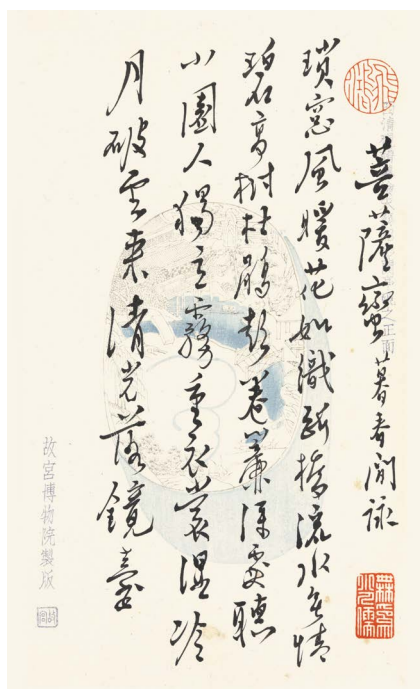 菩薩蠻 暮春閒詠
瑣窓風暖花如織斷橋流水無情
碧高樹杜鵑卷簾深處聽
小園人獨立露重衣裳濕冷
月破雲來清光落鏡臺
之正面
故宮博物院製版